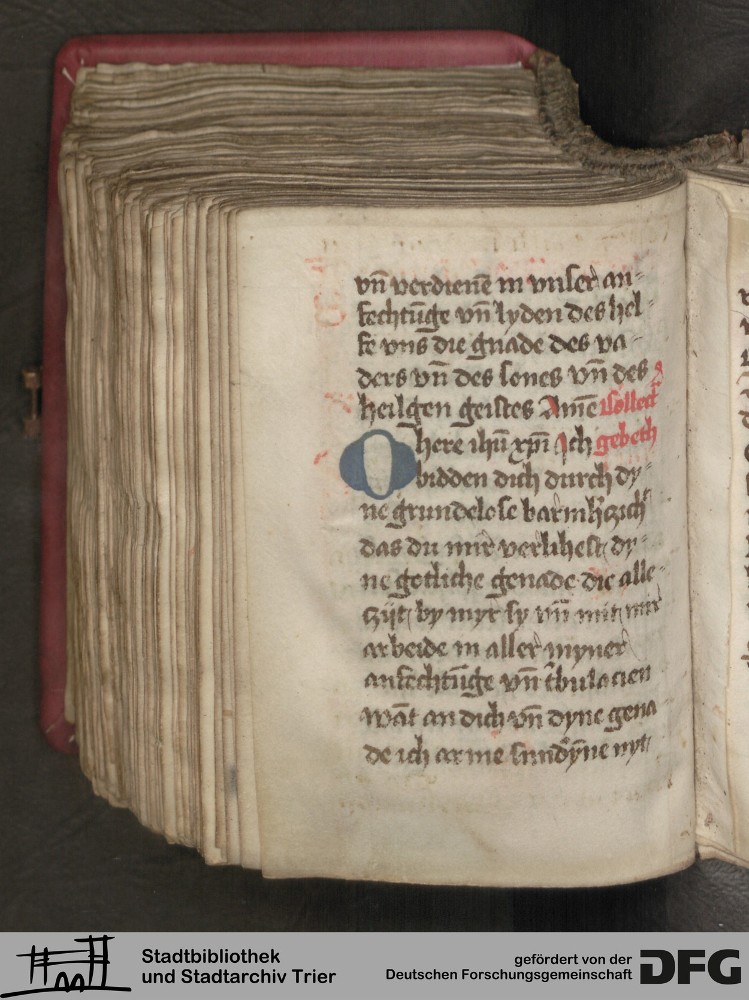 vn̄ verdienē in vnser an⸗
fechtūge vn̄ lyden des hel⸗
fe vns die gnade des va⸗
ders vn̄ des sones vn̄ des
heilgen geistes Amē Collect
O here ihū xp̄i Ich gebeth
bidden dich durch dy⸗
ne grundelose barmh̓czich
das du mir verlihest dy⸗
ne gotliche genade die alle⸗
czijt by myr sy vn̄ mit mir
arbeide in aller myner
anfechtūge vn̄ t̓bulacien
wāt an dich vn̄ dyne gena
de ich arme sundˀyñe nyt
Stadtbibliothek
und Stadtarchiv Trier
gefördert von der
Deutschen Forschungsgemeinschaft
DFG